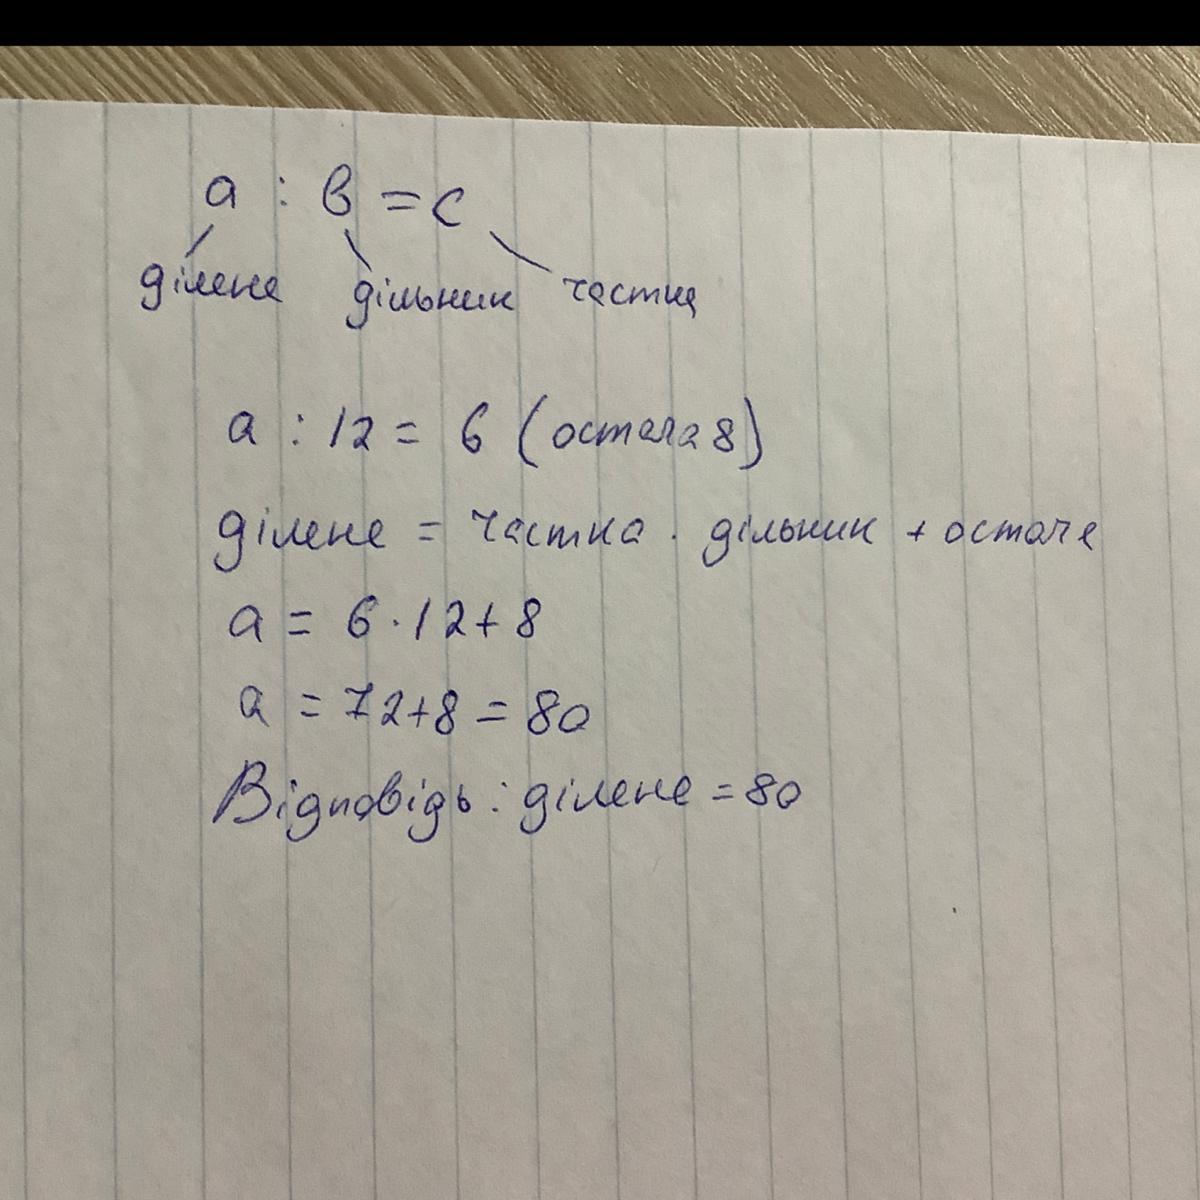 a : в = c
ділене дільник частка
a : 12 = 6 (остача 8)
ділене = частка · дільник + остача
a = 6 · 12 + 8
a = 72 + 8 = 80
Відповідь : ділене = 80